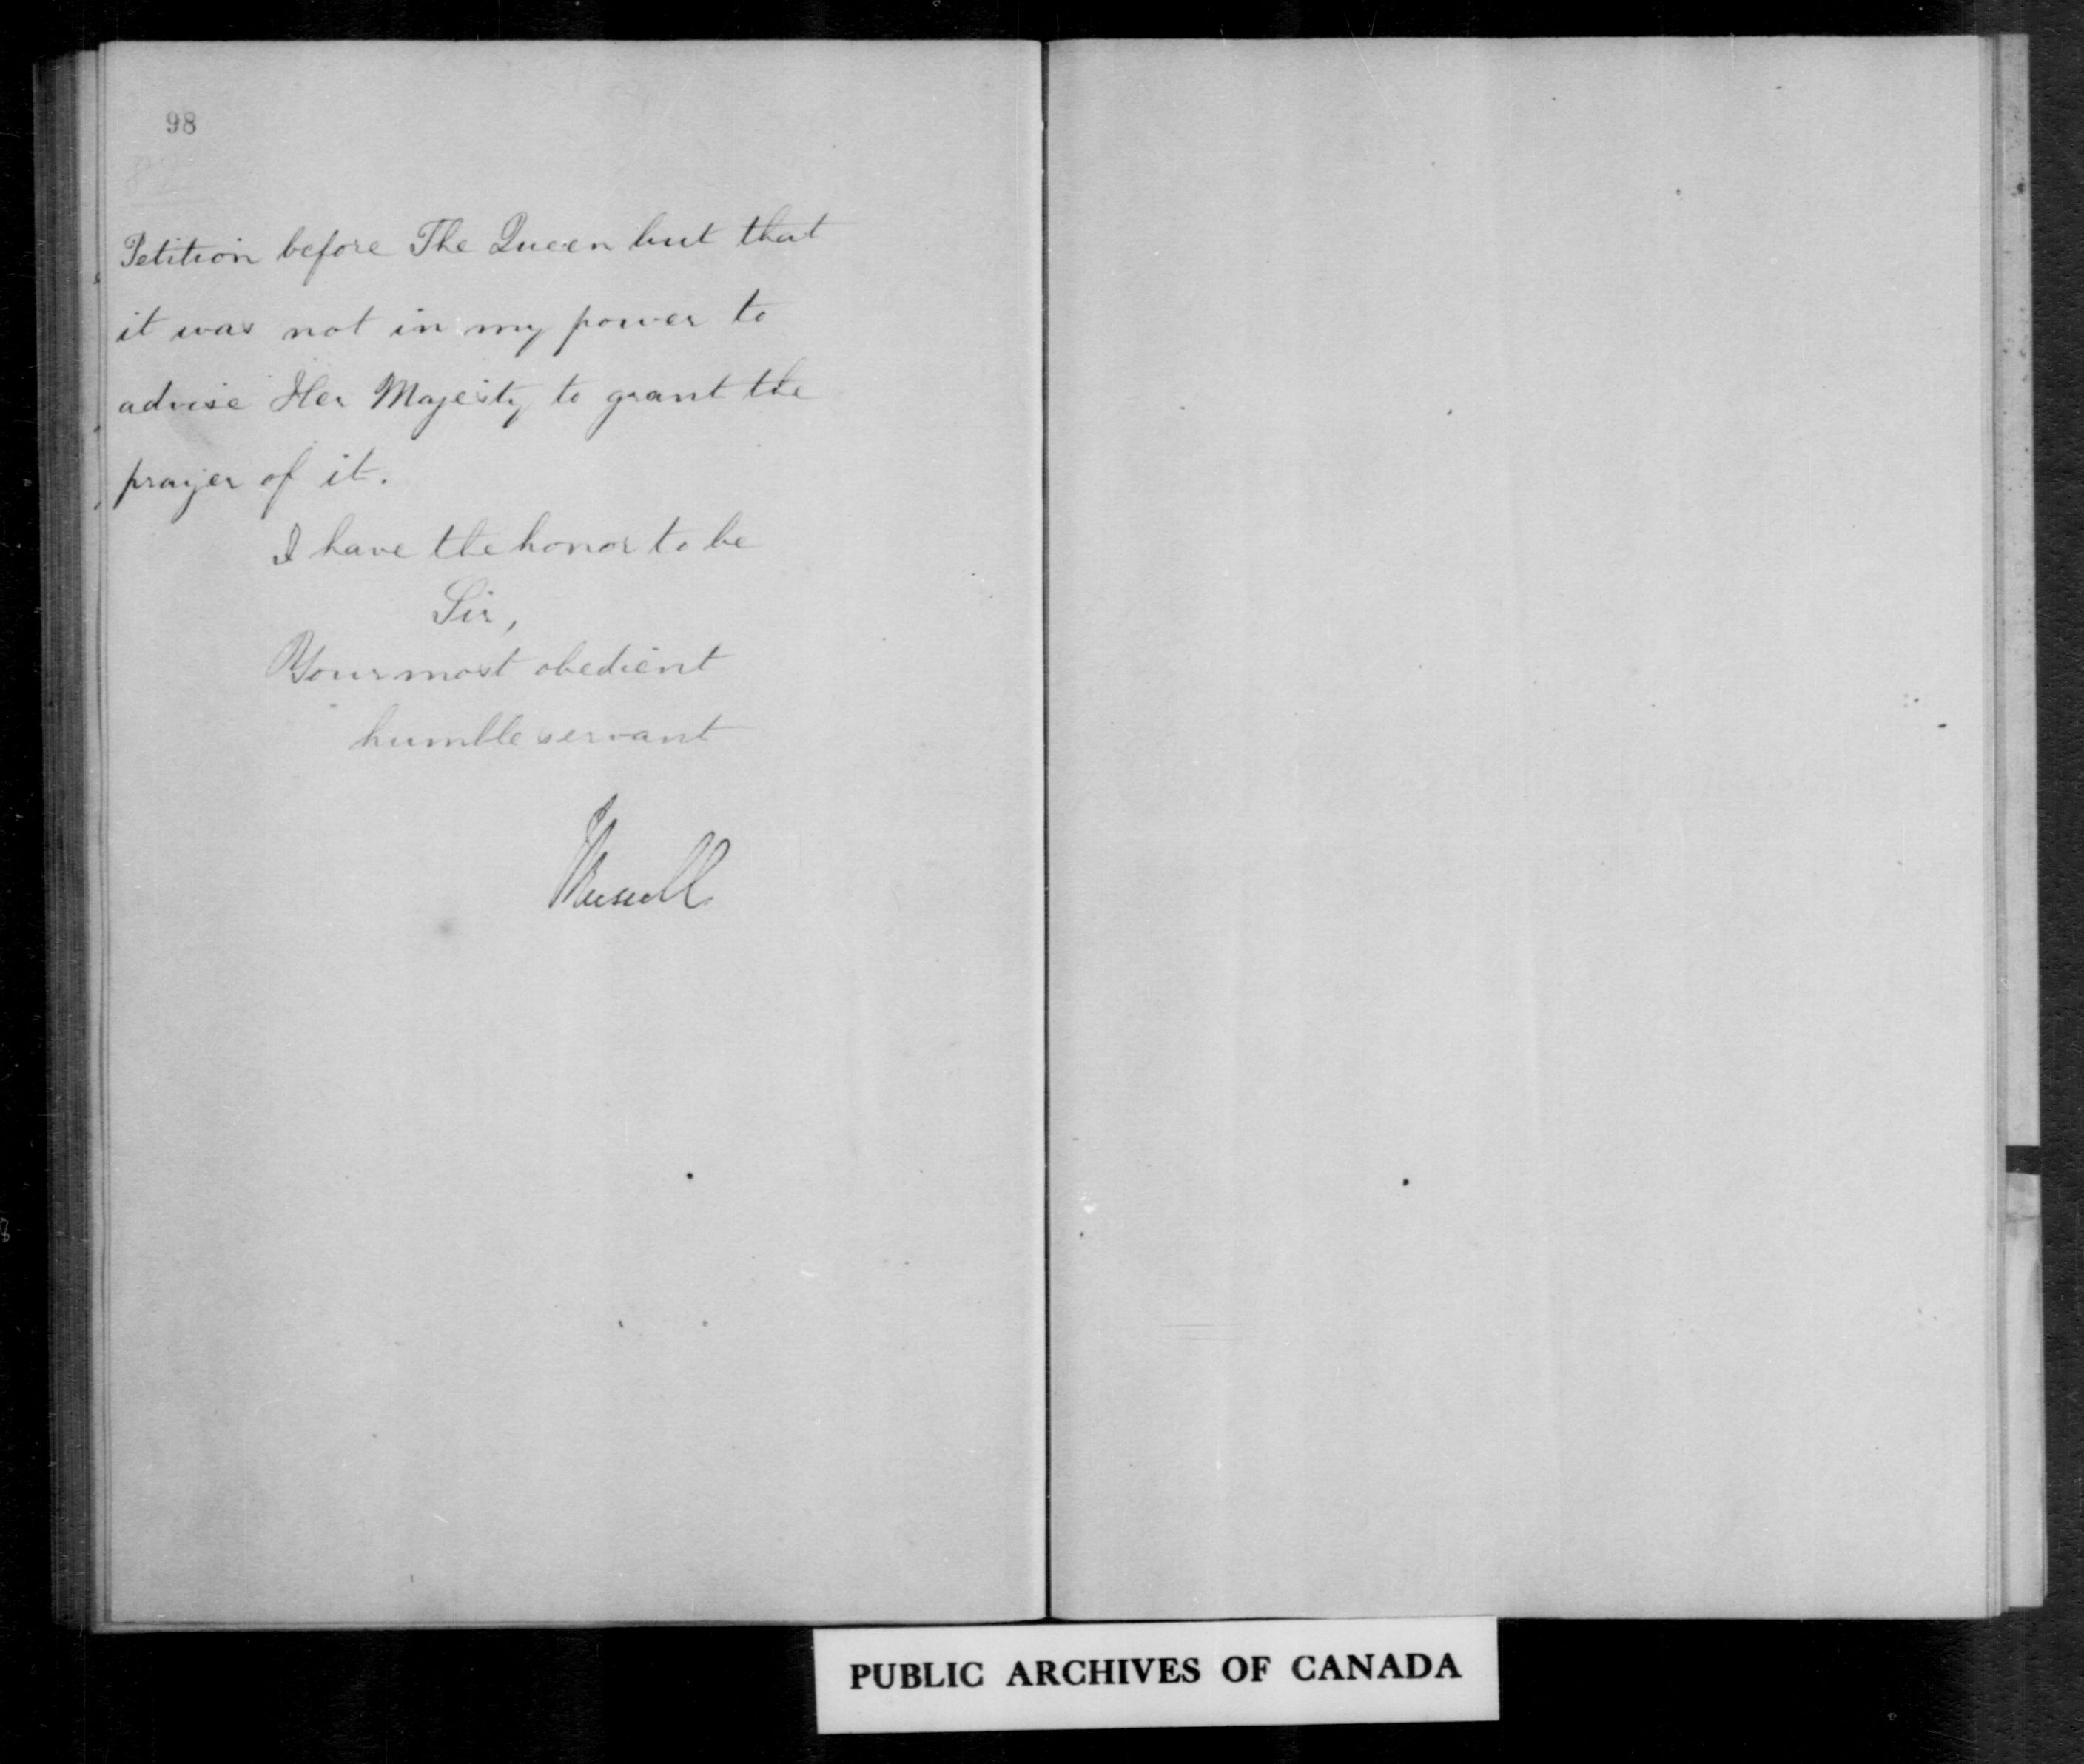 98
Petition before The Queen but that
it was not in my power to
advise Her Majesty to grant the
prayer of it.
I have the honor to be
Sir,
Your most obedient
humble servant
JRussell
PUBLIC ARCHIVES OF CANADA